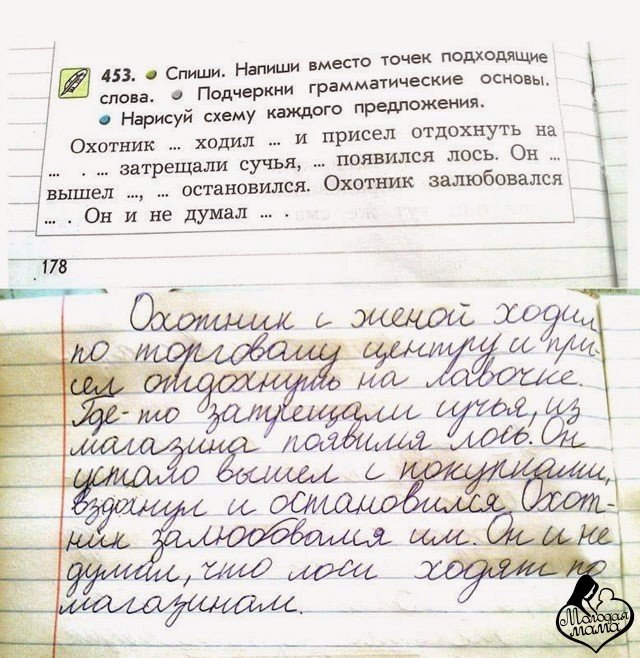 453. • Спиши. Напиши вместо точек подходящие
слова. • Подчеркни грамматические основы.
• Нарисуй схему каждого предложения.
Охотник ... ходил ... и присел отдохнуть на
... . ... затрещали сучья, ... появился лось. Он ...
вышел ..., ... остановился. Охотник залюбовался
... . Он и не думал ... .
178
Охотник с женой ходил
по торговому центру и при-
сел отдохнуть на лавочке.
Где-то затрещали сучья, из
магазина появился лось. Он
устало вышел с покупками,
вздохнул и остановился. Охот-
ник залюбовался им. Он и не
думал, что лоси ходят по
магазинам.
Молодая
мама